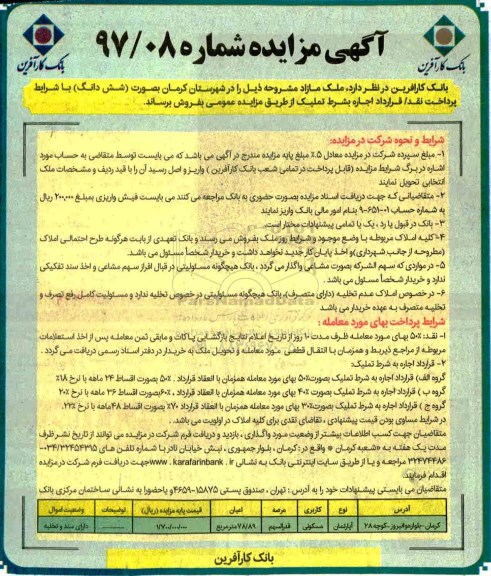 آگهی مزایده شماره ۹۷/۰۸
بانک کارآفرین
بانک کارآفرین
بانک کارآفرین در نظر دارد، ملک مازاد مشروحه ذیل را در شهرستان کرمان بصورت (شش دانگ) با شرایط
پرداخت نقد/ قرارداد اجاره بشرط تملیک از طریق مزایده عمومی بفروش برساند.
شرایط و نحوه شرکت در مزایده:
۱- مبلغ سپرده شرکت در مزایده معادل ۵٪ مبلغ پایه مزایده مندرج در آگهی می باشد که می بایست توسط متقاضی به حساب مورد
اشاره در برگ شرایط مزایده (قابل پرداخت در تمامی شعب بانک کارآفرین) واریز و اصل رسید آن را با قید ردیف و مشخصات ملک
انتخابی تحویل نمایند
۲- متقاضیانی که جهت دریافت اسناد مزایده بصورت حضوری به بانک مراجعه می کنند می بایست فیش واریزی بمبلغ ۲۰۰,۰۰۰ ریال
به شماره حساب بنام امور مالی بانک واریز نمایند
۳- بانک در قبول یا رد، یک یا تمامی پیشنهادات مختار است.
۴- کلیه املاک مربوطه با وضع موجود و شرایط روز ملک بفروش می رسند و بانک تعهدی از بابت هرگونه طرح احتمالی املاک
(مطروحه از جانب شهرداری) و اخذ پایان کار جدید نخواهد داشت و خریدار شخصاً مسئول می باشد.
۵- در مواردی که سهم الشرکه بصورت مشاعی واگذار می گردد، بانک هیچگونه مسئولیتی در قبال افراز سهم مشاعی و اخذ سند تفکیکی
ندارد و خریدار شخصاً مسئول می باشد.
۶- در خصوص املاک عدم تخلیه (دارای متصرف)، بانک هیچگونه مسئولیتی در خصوص تخلیه ندارد و مسئولیت کامل رفع تصرف و
تخلیه متصرف به عهده خریدار می باشد
شرایط پرداخت بهای مورد معامله:
۱- نقد: ۵۰٪ بهای مورد معامله ظرف مدت ۱۰ روز از تاریخ اعلام نتایج بازگشایی پاکات و مابقی ثمن معامله پس از اخذ استعلامات
مربوطه از مراجع ذیربط و همزمان با انتقال قطعی مورد معامله و تحویل ملک به خریدار در دفتر اسناد رسمی دریافت می گردد.
۲- قرارداد اجاره به شرط تملیک:
گروه الف) قرارداد اجاره به شرط تملیک بصورت ۵۰٪ بهای مورد معامله همزمان با انعقاد قرارداد، ۵۰٪ بصورت اقساط ۲۴ ماهه با نرخ ۱۸٪
گروه ب) قرارداد اجاره به شرط تملیک بصورت ۴۰٪ بهای مورد معامله همزمان با انعقاد قرارداد، ۶۰٪ بصورت اقساط ۳۶ ماهه با نرخ ۲۰٪
گروه ج) قرارداد اجاره به شرط تملیک بصورت ۳۰٪ بهای مورد معامله همزمان با انعقاد قرارداد ۷۰٪ بصورت اقساط ۴۸ ماهه با نرخ ۲۲٪.
در شرایط مساوی بودن قیمت پیشنهادی، تقاضای نقدی برای کلیه املاک در اولویت می باشد.
متقاضیان جهت کسب اطلاعات بیشتر از وضعیت مورد واگذاری، بازدید و دریافت فرم شرکت در مزایده می توانند از تاریخ نشر ظرف
مدت یک هفته به «شعبه کرمان» واقع در: کرمان، بلوار جمهوری، نبش خیابان نادر با شماره تلفن های ۰۳۴/۳۲۴۵۴۳۳۵-
۳۲۴۷۴۴۸۶ مراجعه و یا از طریق سایت اینترنتی بانک به نشانی www.karafarinbank.ir جهت دریافت فرم شرکت در مزایده
اقدام فرمایند.
متقاضیان می بایستی پیشنهادات خود را به آدرس: تهران، صندوق پستی ۱۵۸۷۵-۴۶۵۹ و یا حضورا به نشانی ساختمان مرکزی بانک
آدرس نوع کاربری عرصه اعیان قیمت پایه مزایده (ریال) توضیحات وضعیت اموال
کرمان-بلوار هوافیروز-کوچه ۲۸ آپارتمان مسکونی قدرالسهم ۷۸/۸۹ مترمربع ۱/۷۰۰/۰۰۰/۰۰۰ ---------- دارای سند و تخلیه
بانک کارآفرین